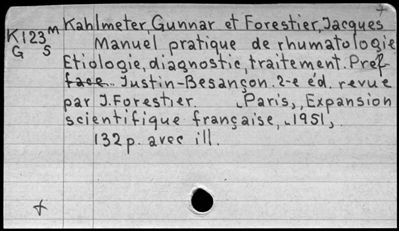 K123m Kahlmeter, Gunnar et Forestier, Jacques
G S Manuel pratique de rhumatologie
Etiologie, diagnostic, traitement. Pref-
face. Justin-Besançon. 2-e éd. revue
par J. Forestier. Paris, Expansion
scientifique française, 1951,
132 p. avec ill.